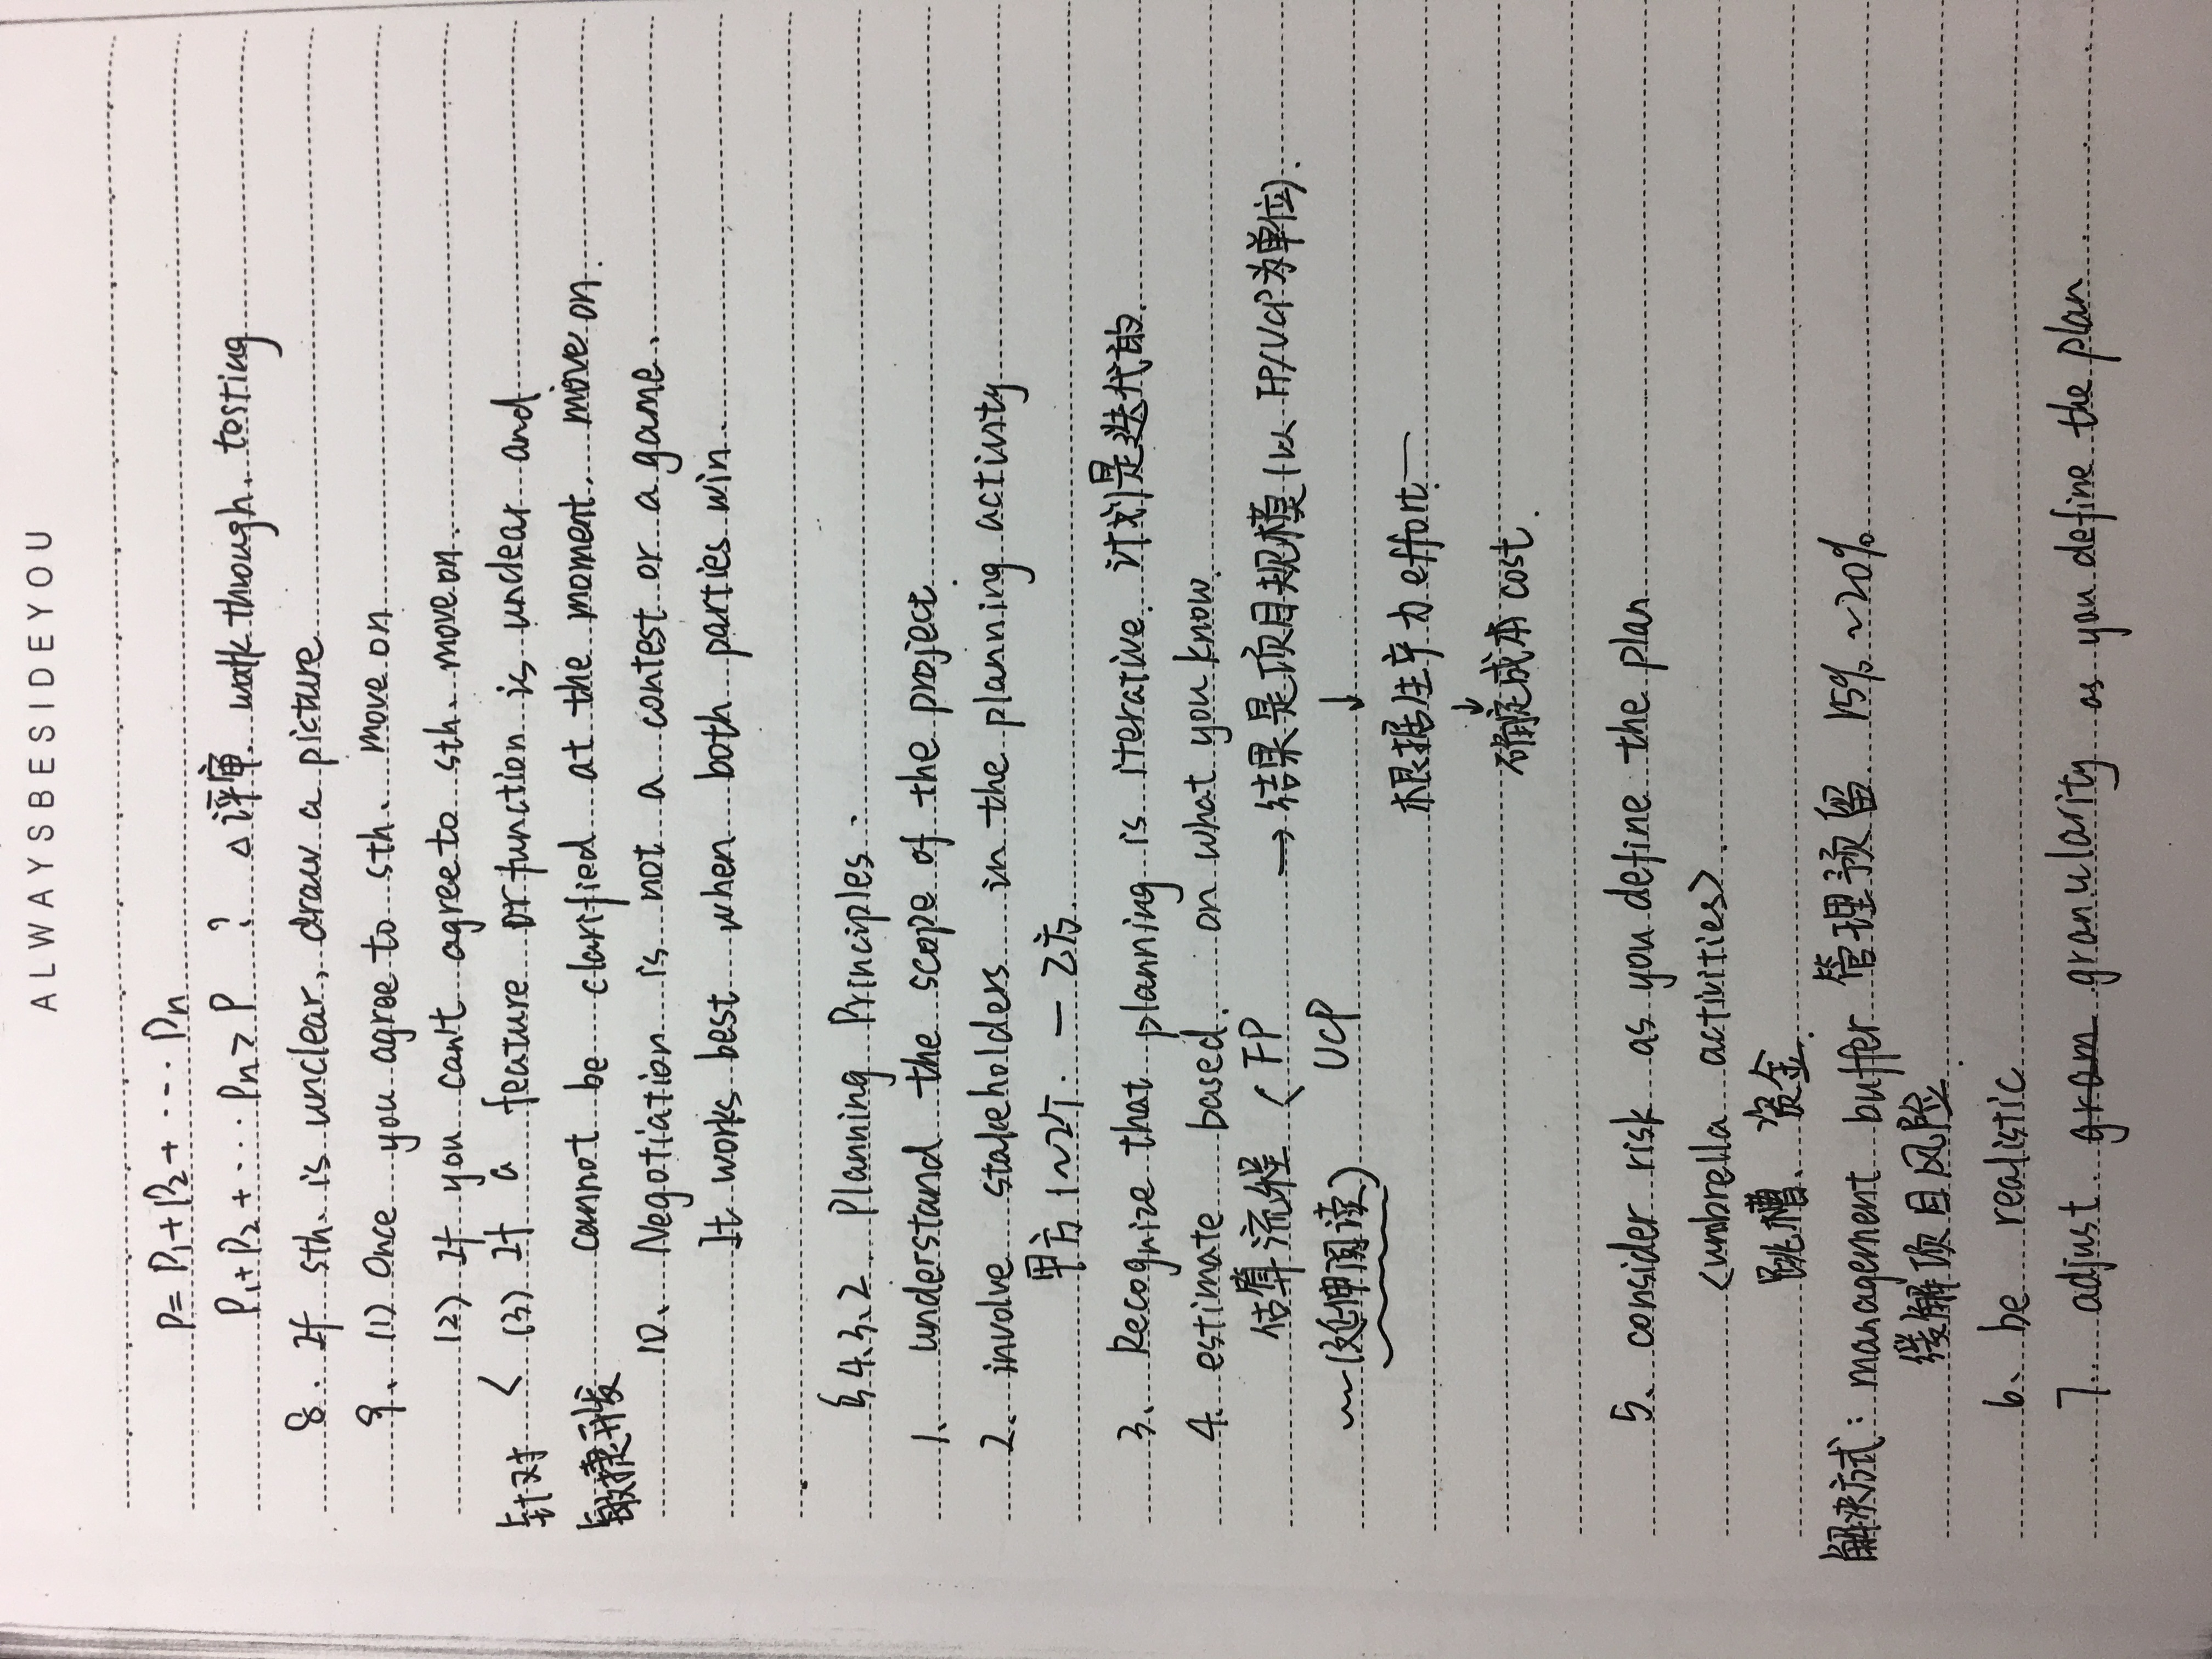 ALWAYSBESIDEYOU
P= P₁+P₂+ ··· Pn
P₁+P₂+ ··· Pn > P ? △评审. walk through. testing
8. If sth. is unclear, draw a picture
9. (1) Once you agree to sth. move on
(2) If you can't agree to sth. move on.
针对 < (3) If a feature or function is unclear and
敏捷开发 cannot be clarified at the moment. move on.
10. Negotiation is not a contest or a game.
It works best when both parties win.
§4.3.2. Planning Principles:
1. understand the scope of the project.
2. involve stakeholders in the planning activity
甲方 1~2个. — 乙方.
3. Recognize that planning is iterative. 计划是迭代的.
4. estimate based. on what you know.
估算流程 < FP → 结果是项目规模 (以 FP/UCP为单位).
~~(延伸阅读) UCP ↓
根据生产力 effort. —
↓
确定成本 cost.
5. consider risk as you define the plan
<umbrella activities>.
跳槽、资金.
解决方式: management buffer 管理预留 15% ~20%
缓解项目风险.
6. be realistic
7. adjust gram granularity as you define the plan